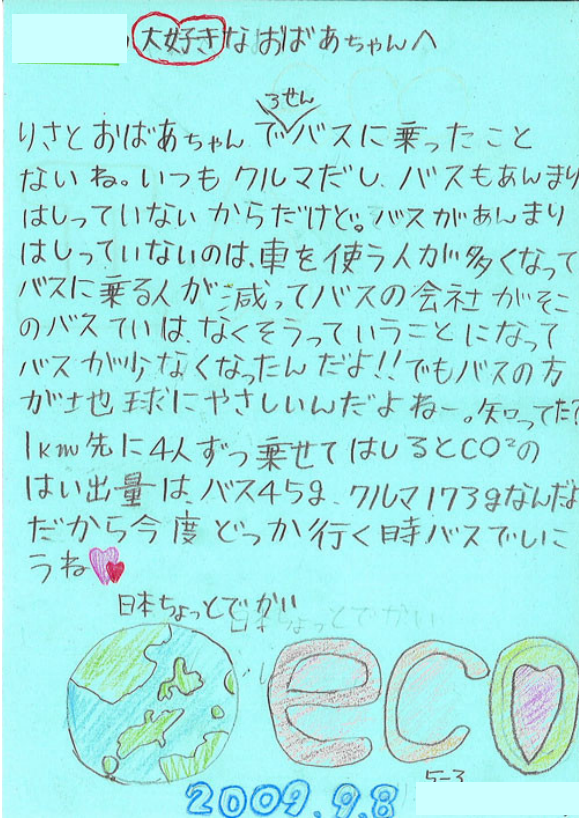 大好きなおばあちゃんへ
ろせん
りさとおばあちゃんでバスに乗ったこと
ないね。いつもクルマだし、バスもあんまり
はしっていないからだけど。バスがあんまり
はしっていないのは、車を使う人が多くなって
バスに乗る人が減ってバスの会社がそこ
のバスていは、なくそうっていうことになって
バスが少なくなったんだよ!!でもバスの方
が地球にやさしいんだよねー。知ってた?
1km先に4人ずつ乗せてはしるとCO²の
はい出量は、バス45g、クルマ173gなんだよ
だから今度どっか行く時バスでいこ
うね
日本ちょっとでかい
日本ちょっとでかい
eco
5-3
2009.9.8